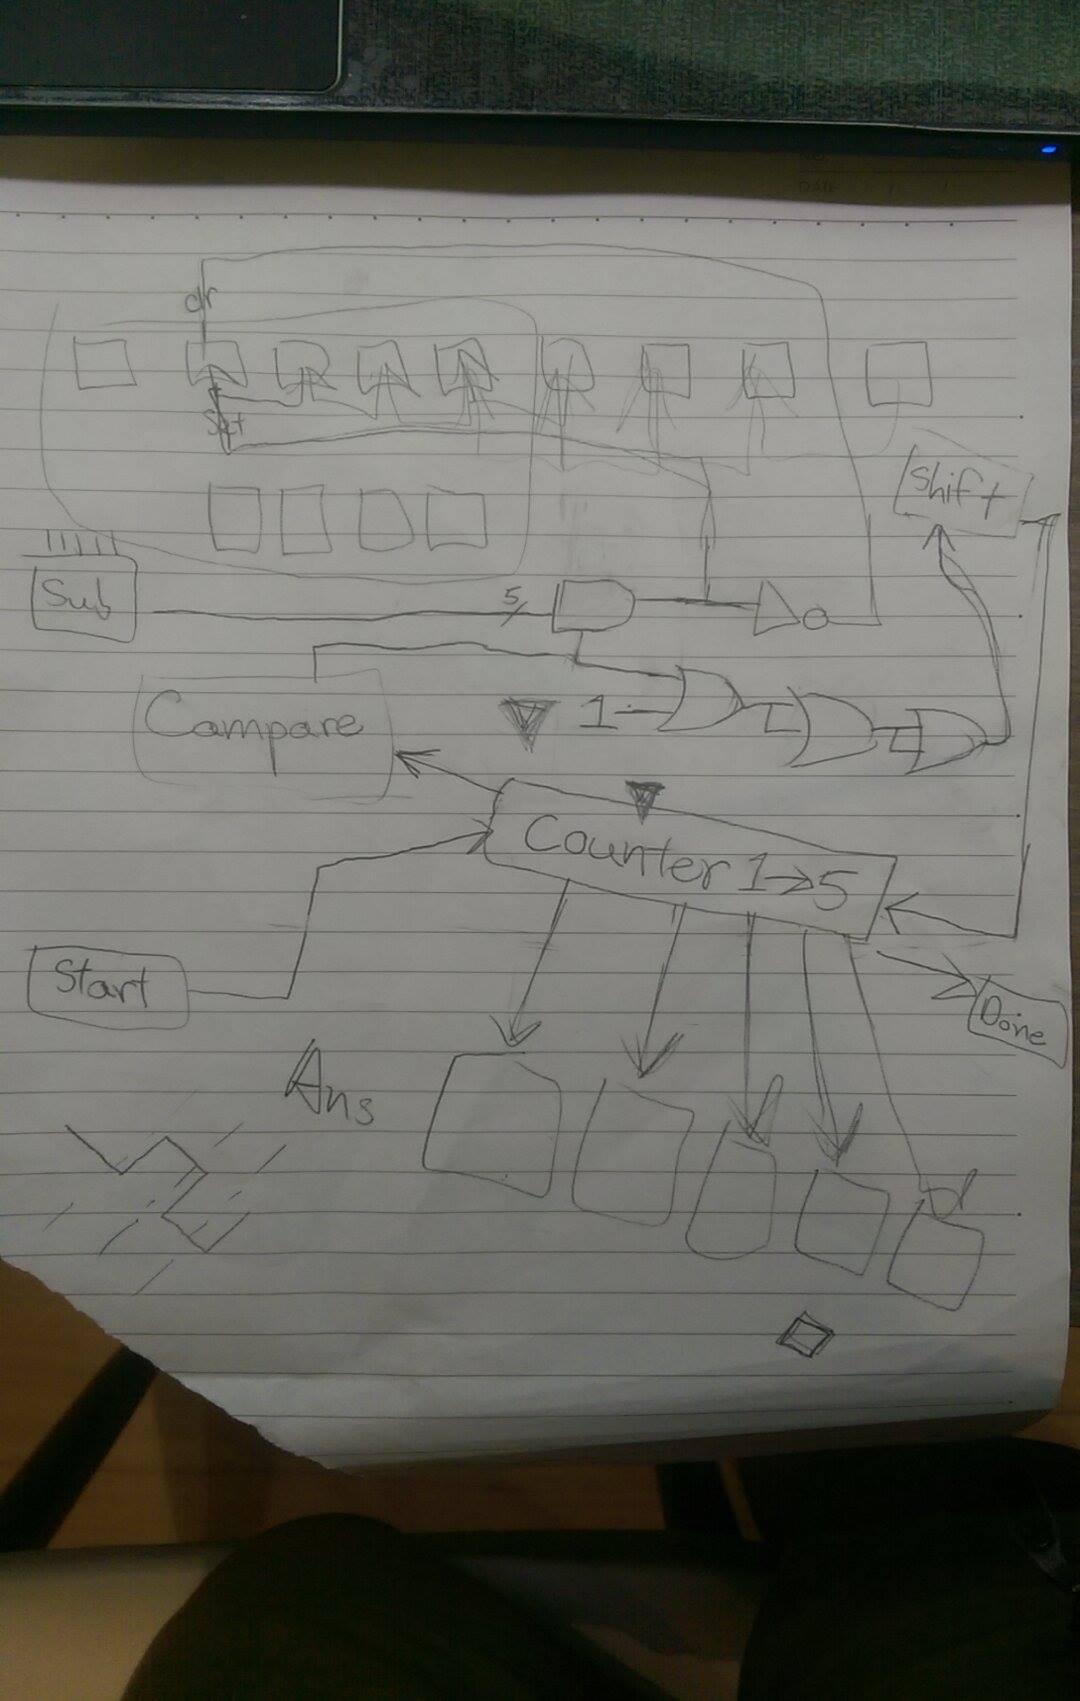 DATE
clr
Set
Shift
Sub
5
Compare
1
Counter 1→5
Start
Done
Ans